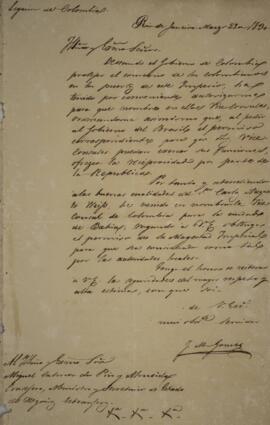 Legacion de Colombia
Rio de Janeiro Marzo 23 de 1830
Illmo y Exmo Señor
Deseando el Gobierno de Colombia
proteger el comercio de los colombianos
en los puertos de este Imperio, ha
tenido por conveniente autorizarme
para que nombre en ellos Vice Consules
ordenandome asimismo que, al pedir
al Gobierno del Brasil el permiso
correspondiente para que los Vice
Consules puedan ejercer sus funciones,
ofrezca la reciprocidad por parte de
la Republica.
Por tanto y atendiendo
a las buenas cualidades del Sr. Carlos
Weiss, he venido en nombrarle Vice
Consul de Colombia para la ciudad
de Bahia; rogando a V.E. obtenga
el permiso de Su Magestad Imperial
para que sea reconocido como tal
por las autoridades locales.
Tengo el honor de reiterar
a V.E. las seguridades del mayor respeto y
alta estima, con que soi
de V. Exa.
mui obte. servidor
J. M. Gomez
Illmo y Exmo Señor
Miguel de
Consejero, Ministro y Secretario de Estado
de Negocios Extrangeros